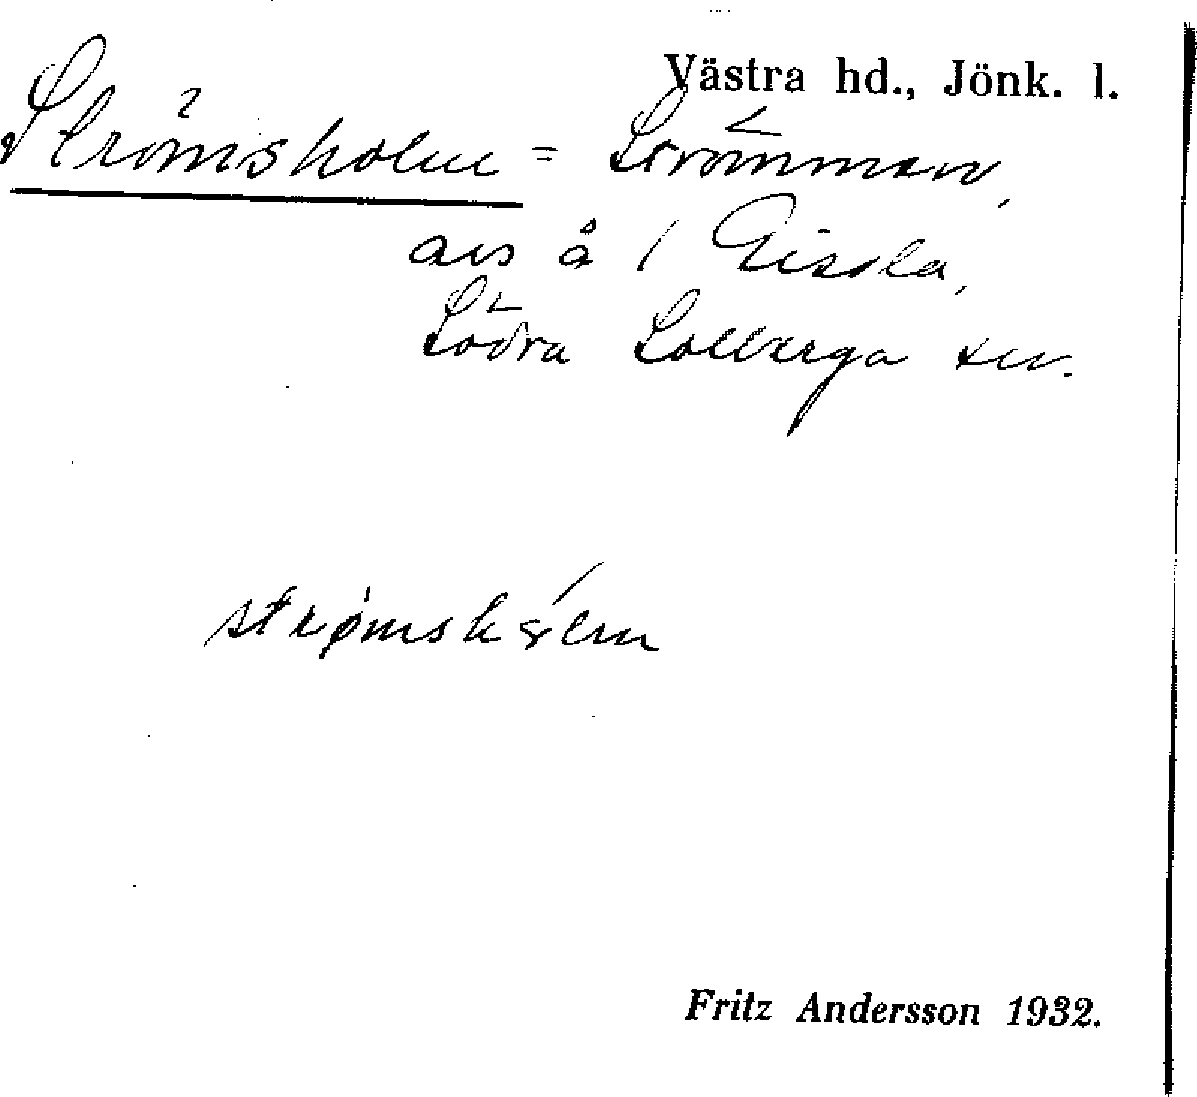 Västra hd., Jönk. l.
Strömsholm = Strömmen,
avs å / Gissla,
Södra Solberga sn.
strømshólm
Fritz Andersson 1932.